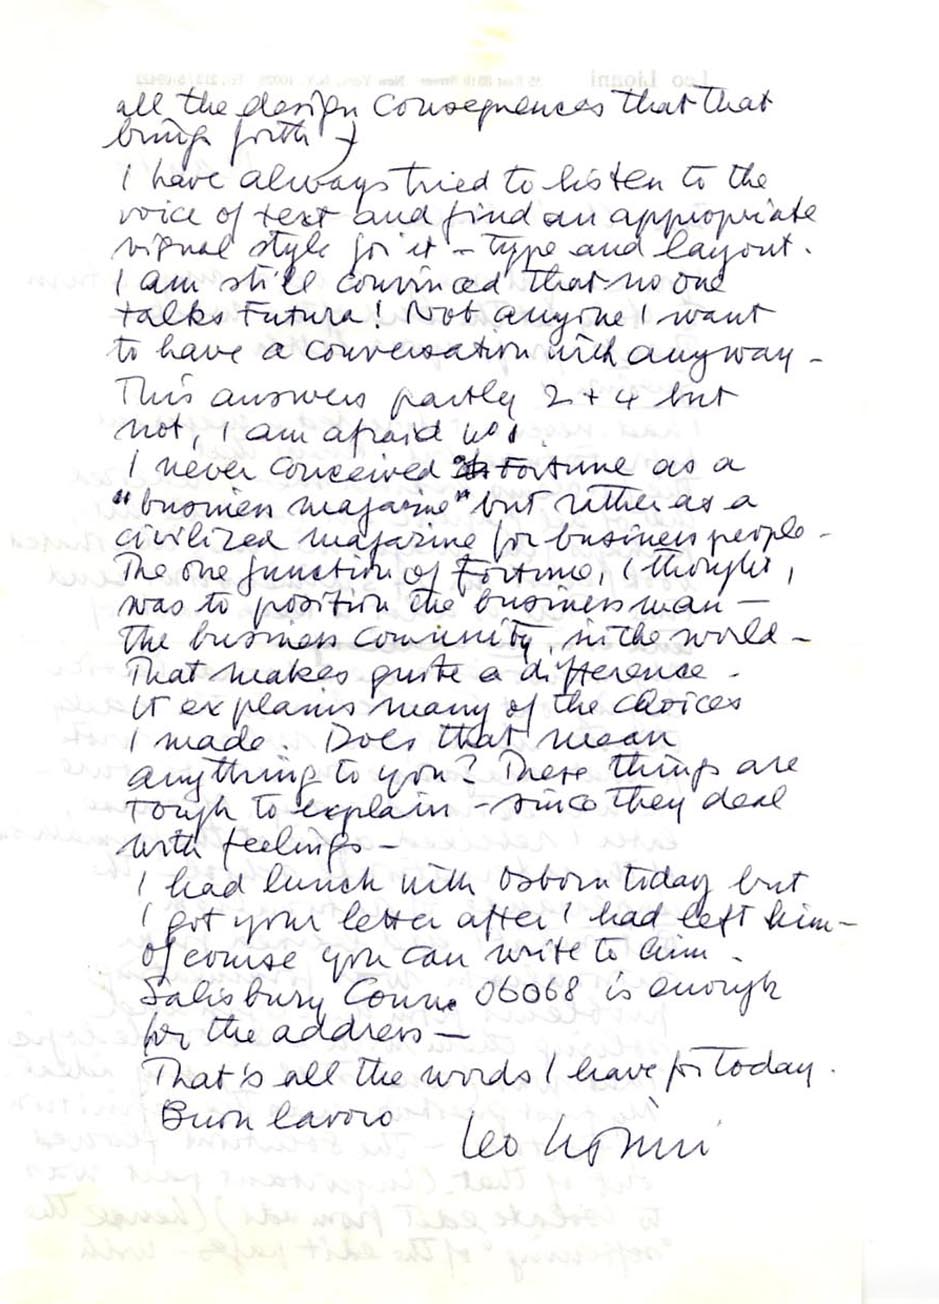 all the design consequences that that
brings forth
I have always tried to listen to the
voice of text and find an appropriate
visual style for it – type and layout.
I am still convinced that no one
talks Futura! Not anyone I want
to have a conversation with anyway –
This answers partly 2 + 4 but
not, I am afraid
I never conceived Fortune as a
"business magazine" but rather as a
civilized magazine for business people –
The one function of Fortune, I thought,
was to position the businessman –
the business community, in the world –
That makes quite a difference.
It explains many of the choices
I made. Does that mean
anything to you? These things are
tough to explain – since they deal
with feelings –
I had lunch with Osborn today but
I got your letter after I had left him –
of course you can write to him.
Salisbury Conn. 06068 is enough
for the address –
That's all the words I have for today.
Buon lavoro
Leo Lionni